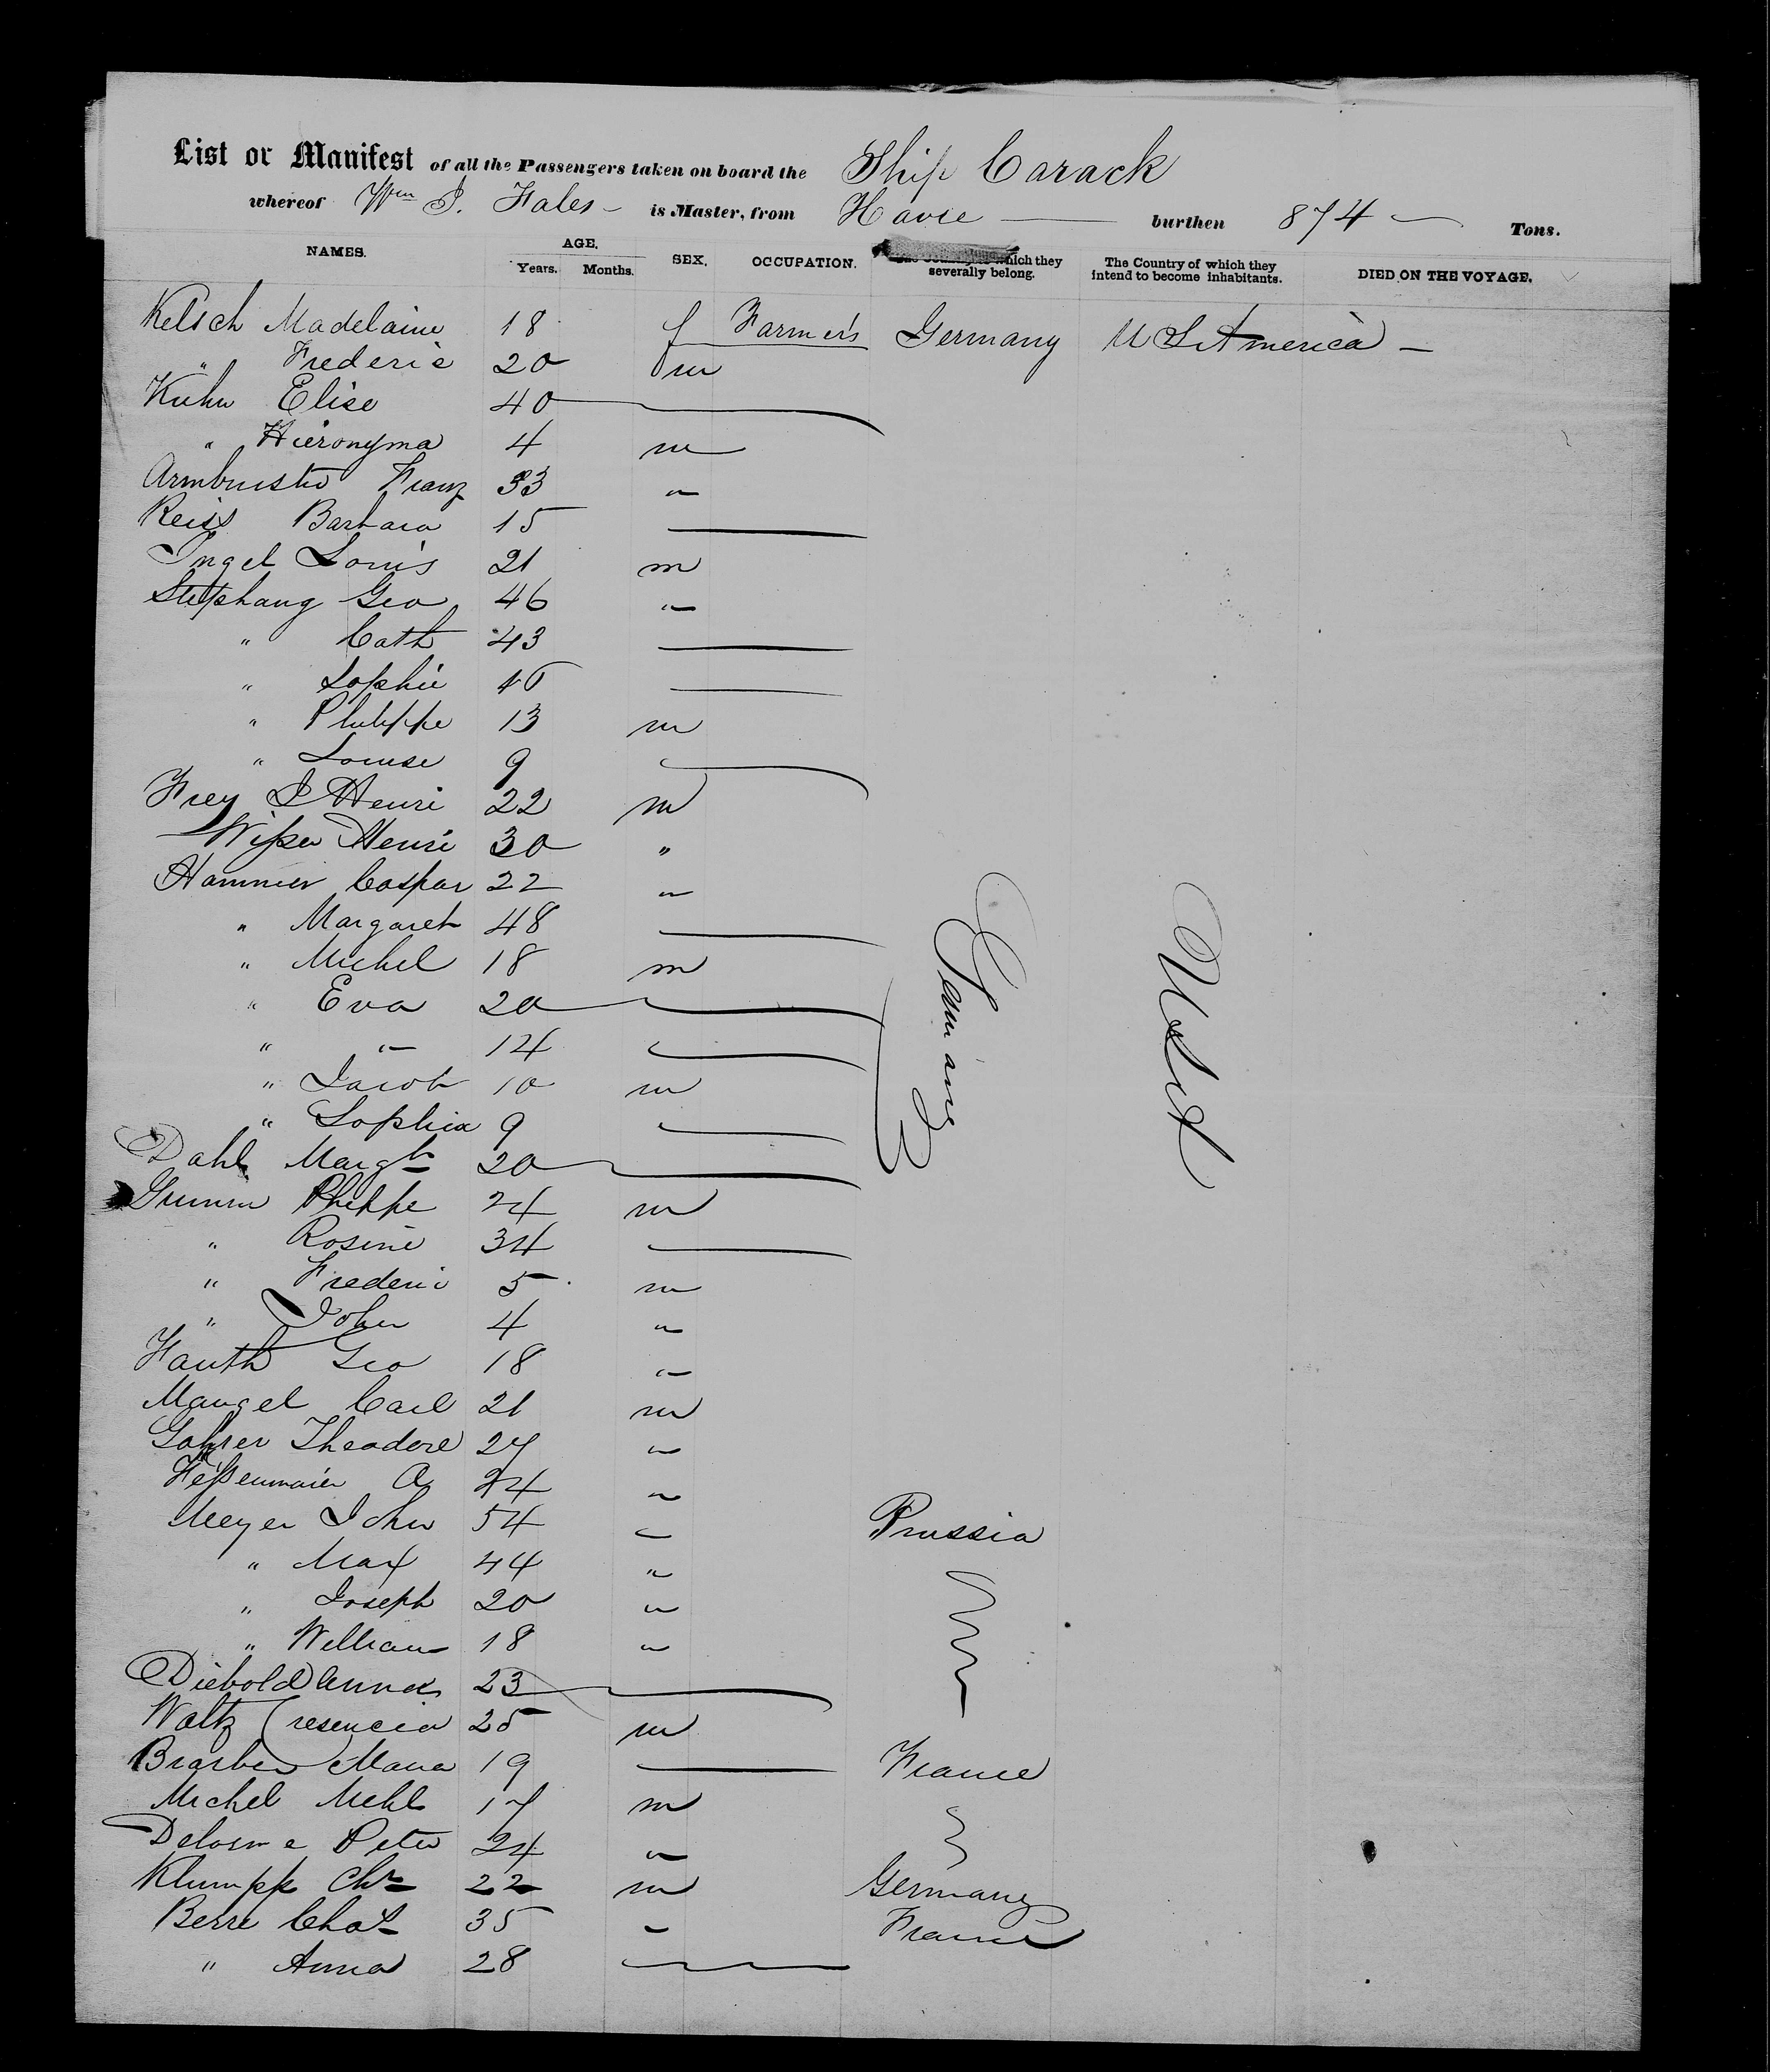 List or Manifest of all the Passengers taken on board the Ship Carack
whereof Wm J. Fales is Master, from Havre burthen 874 Tons.
NAMES. AGE. Years. Months. SEX. OCCUPATION. which they severally belong. The Country of which they intend to become inhabitants. DIED ON THE VOYAGE.
Kelsch Madelaine 18 f Farmers Germany U S America
" Frederic 20 m
Kuhn Elise 40
" Hieronyma 4 m
Armbruster Franz 33 "
Reiss Barbara 15
Ingel Louis 21 m
Stephang Geo 46 "
" Cath 43
" Sophie 16
" Philippe 13 m
" Louise 9
Frey J Henri 22 m
Henri 30 "
Hammer Caspar 22 "
" Margaret 48
" Michel 18 m
" Eva 20
" " 14
" Jacob 10 m
" Sophia 9
Germany
Dahl Margt 20
Grumm Philippe 24 m
" Rosine 34
" Frederic 5 m
" John 4 "
Fauth Geo 18 "
Mangel Carl 21 m
Gohrer Theodore 27 "
A 24 "
Meyer John 54 " Prussia
" Max 44 "
" Joseph 20 "
" William 18 "
Diebold Anna 23
Waltz Cresencia 25 m
Maria 19 France
Michel Mehl 17 m
Delorme Peter 24 "
Klumpp Chr 22 m Germany
Berre Chas 35 " France
" Anna 28